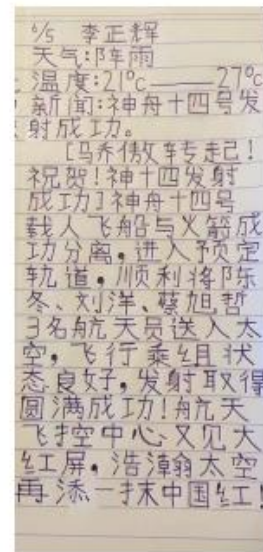 6/5 李正辉
天气:阵雨
温度:21℃——27℃
新闻:神舟十四号发
射成功。
[马乔傲专走己!
祝贺!神十四发射
成功]神舟十四号
载人飞船与火箭成
功分离,进入预定
轨道,顺利将陈
冬、刘洋、蔡旭哲
3名航天员送入太
空,飞行乘组状
态良好,发射取得
圆满成功!航天
飞控中心又见大
红屏,浩瀚太空
再添一抹中国红!